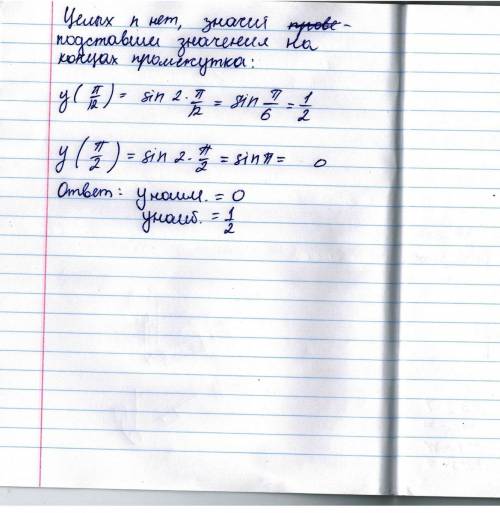 Целых n нет, значит прове-
подставим значения на
концах промежутка:
y(π/12) = sin 2·π/12 = sin π/6 = 1/2
y(π/2) = sin 2·π/2 = sin π = 0
Ответ: yнаим. = 0
yнаиб. = 1/2